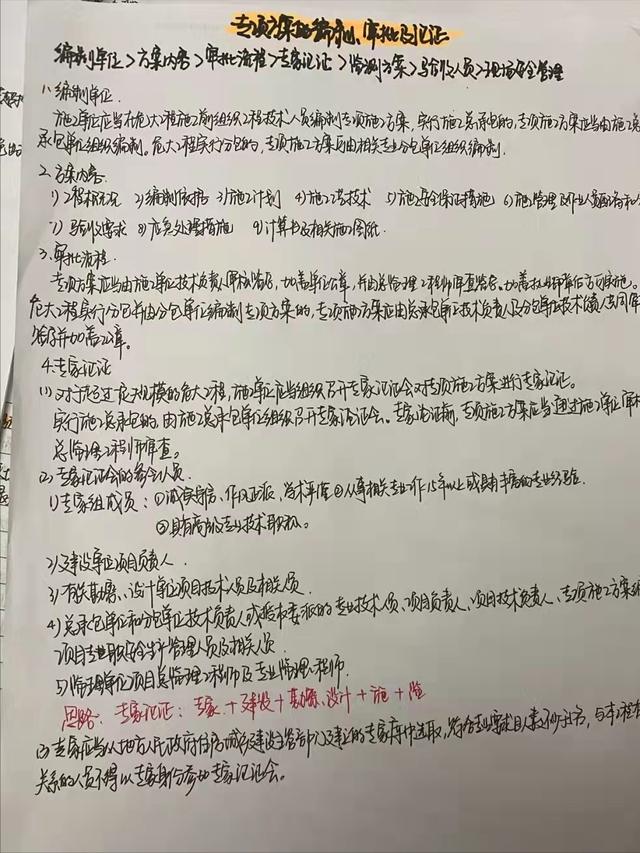 专项方案的编制、审批及论证
编制单位>方案内容>审批流程>专家论证>监测方案>验收人员>现场安全管理
1、编制单位.
施工单位应当在危大工程施工前组织工程技术人员编制专项施工方案,实行施工总承包的,专项施工方案应当由施工总
承包单位组织编制。危大工程实行分包的,专项施工方案可由相关专业分包单位组织编制.
2.方案内容.
1)工程概况 2)编制依据 3)施工计划 4)施工工艺技术 5)施工安全保证措施 6)施工管理及作业人员配备和分
7)验收要求 8)应急处理措施 9)计算书及相关施工图纸.
3.审批流程.
专项方案应当由施工单位技术负责人审核签名,加盖单位公章,并由总监理工程师审查签名、加盖执业印章后方可实施。
危大工程实行分包并由分包单位编制专项方案的,专项施工方案应由总承包单位技术负责人及分包单位技术负责人共同审
签字并加盖公章。
4.专家论证
(1)对于超过一定规模的危大工程,施工单位应当组织召开专家论证会对专项施工方案进行专家论证。
实行施工总承包的,由施工总承包单位组织召开专家论证会。专家论证前,专项施工方案应当通过施工单位审核
总监理工程师审查。
(2)专家论证会的参会人员
1)专家组成员:①诚实守信、作风正派、学术严谨②从事相关专业工作15年以上或具有丰富的专业经验.
③具有高级专业技术职称。
2)建设单位项目负责人.
3)有关勘察、设计单位项目技术人员及相关人员.
4)总承包单位和分包单位技术负责人或授权委派的专业技术人员、项目负责人、项目技术负责人、专项施工方案编
项目专职安全生产管理人员及相关人员.
5)监理单位项目总监理工程师及专业监理工程师.
思路:专家论证:专家+建设+勘察、设计+施+监
(3)专家应当从地方人民政府住房城乡建设主管部门建立的专家库中选取,符合专业要求且人数不少于5名,与本工程有
关系的人员不得以专家身份参加专家论证会。